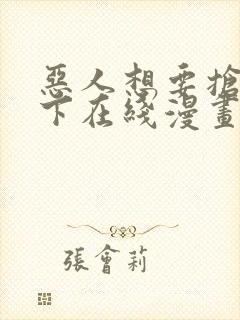 惡人想要搶
下在綫漫畫
張會莉